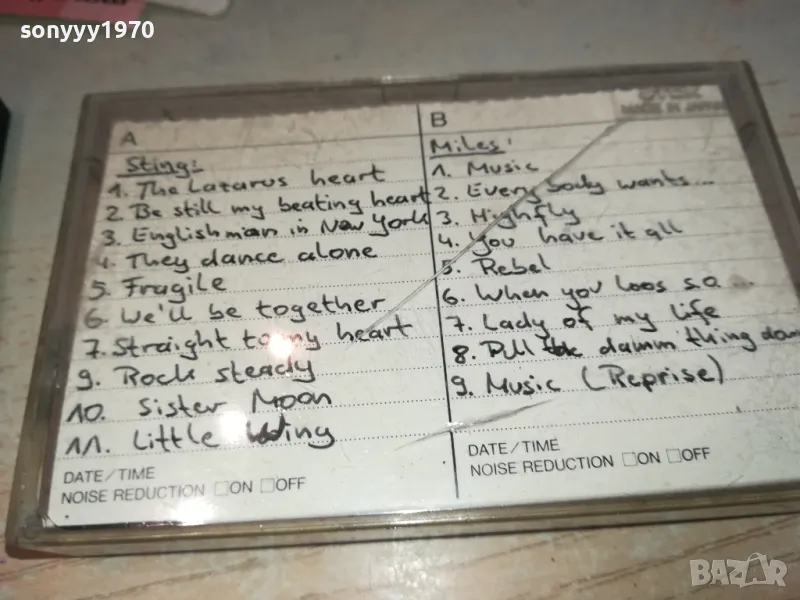 sonyyy1970
A
Sting:
1. The Latarus heart
2. Be still my beating heart
3. Englishman in New York
4. They dance alone
5. Fragile
6. We'll be together
7. Straight to my heart
9. Rock steady
10. Sister Moon
11. Little Wing
DATE/TIME
NOISE REDUCTION □ON □OFF
B
MADE IN JAPAN
Miles:
1. Music
2. Every body wants...
3. Highfly
4. You have it all
5. Rebel
6. When you loos s.o...
7. Lady of my life
8. Pull the damm thing
9. Music (Reprise)
DATE/TIME
NOISE REDUCTION □ON □OFF
BAZAR